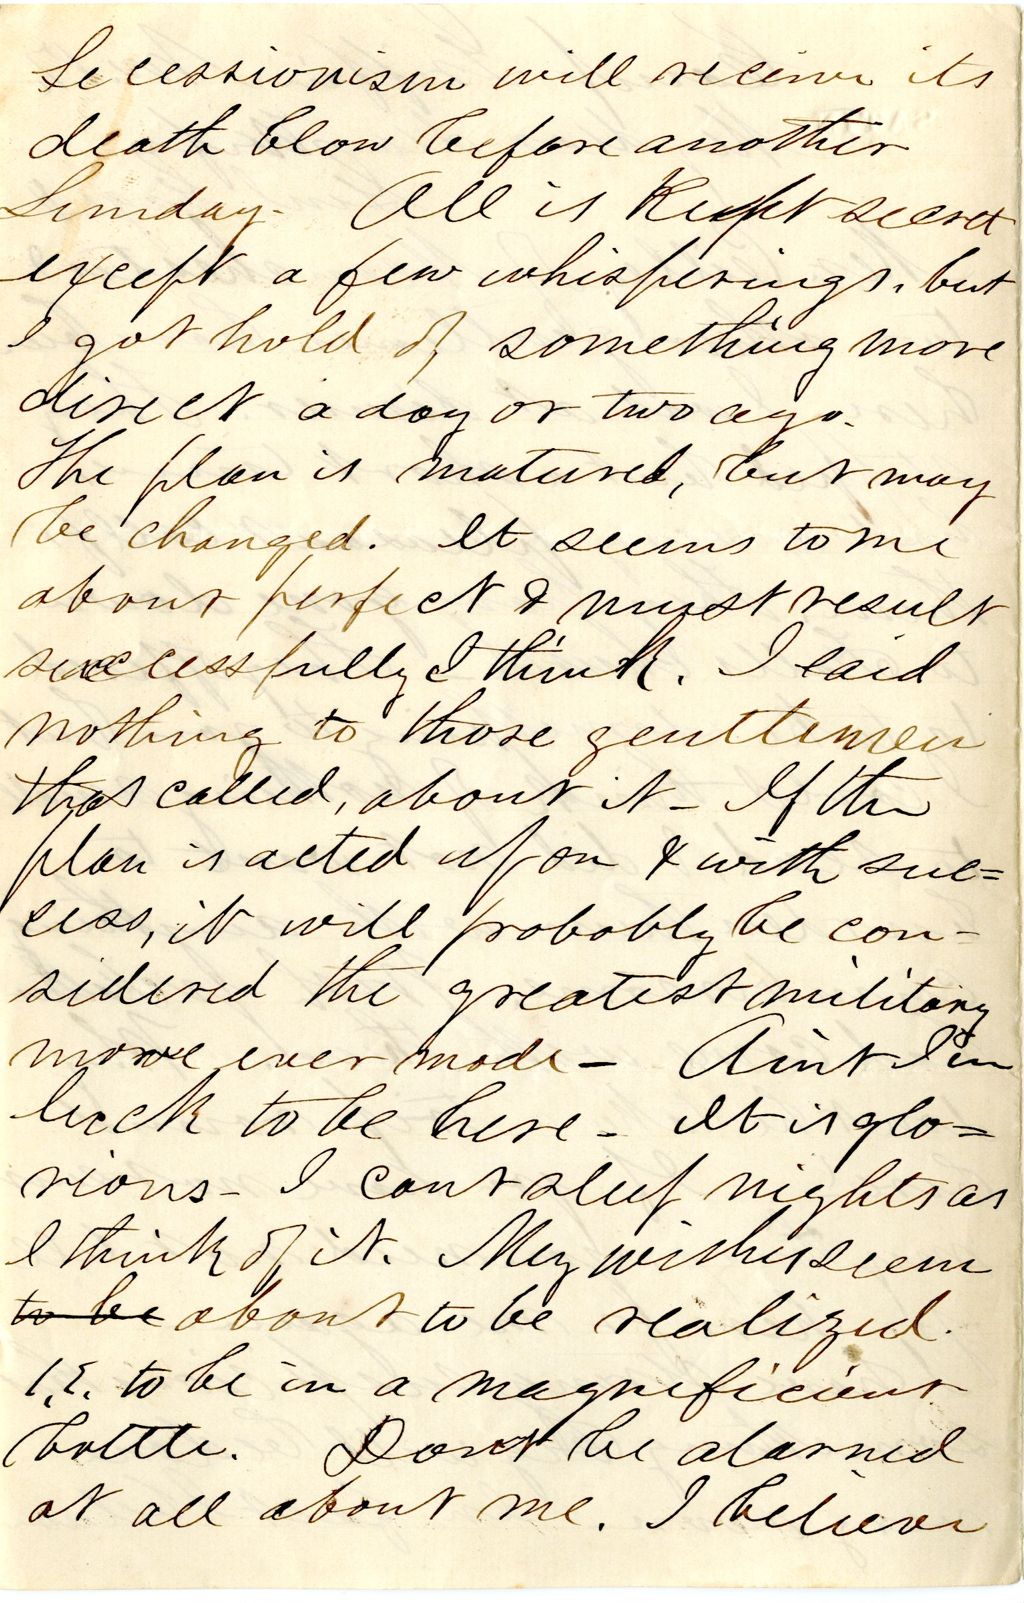 Secessionism will receive its
death blow before another
Sunday. All is Kept secret
except a few whisperings, but
I got hold of something more
direct a day or two ago.
The plan is matured, but may
be changed. It seems to me
about perfect & must result
successfully I think. I said
nothing to those genttemen
that called, about it - If the
plan is acted upon & with suc=
cess, it will probably be con-
sidered the greatest military
move ever made - Aint I in
luck to be here - It is glo=
rious - I cant sleep nights as
I think of it. My wishes seem
to be about to be realized.
i.e. to be in a magnificient
battle. Dont be alarmed
at all about me. I believe